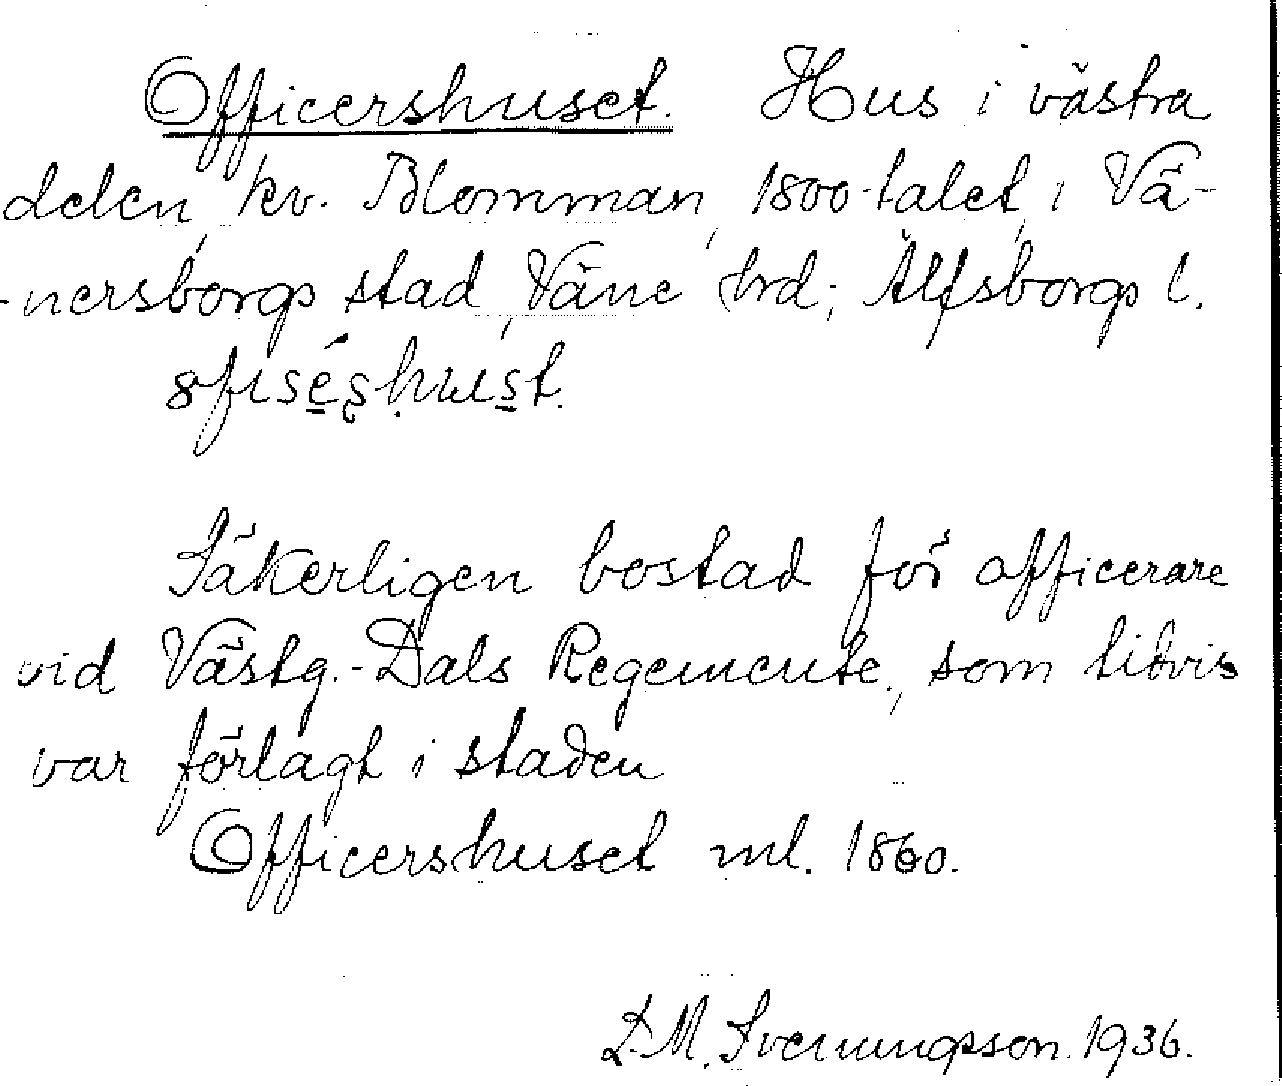 Officershuset. Hus i västra
delen, kv. Blomman, 1800-talet, i Vä-
-nersborgs stad, Väne hrd; Älfsborgs l.
Säkerligen bostad för officerare
vid Västg.-Dals Regemente, som tidvis
var förlagt i staden
Officershuset ml. 1860.
D. M. Sverningsson. 1936.